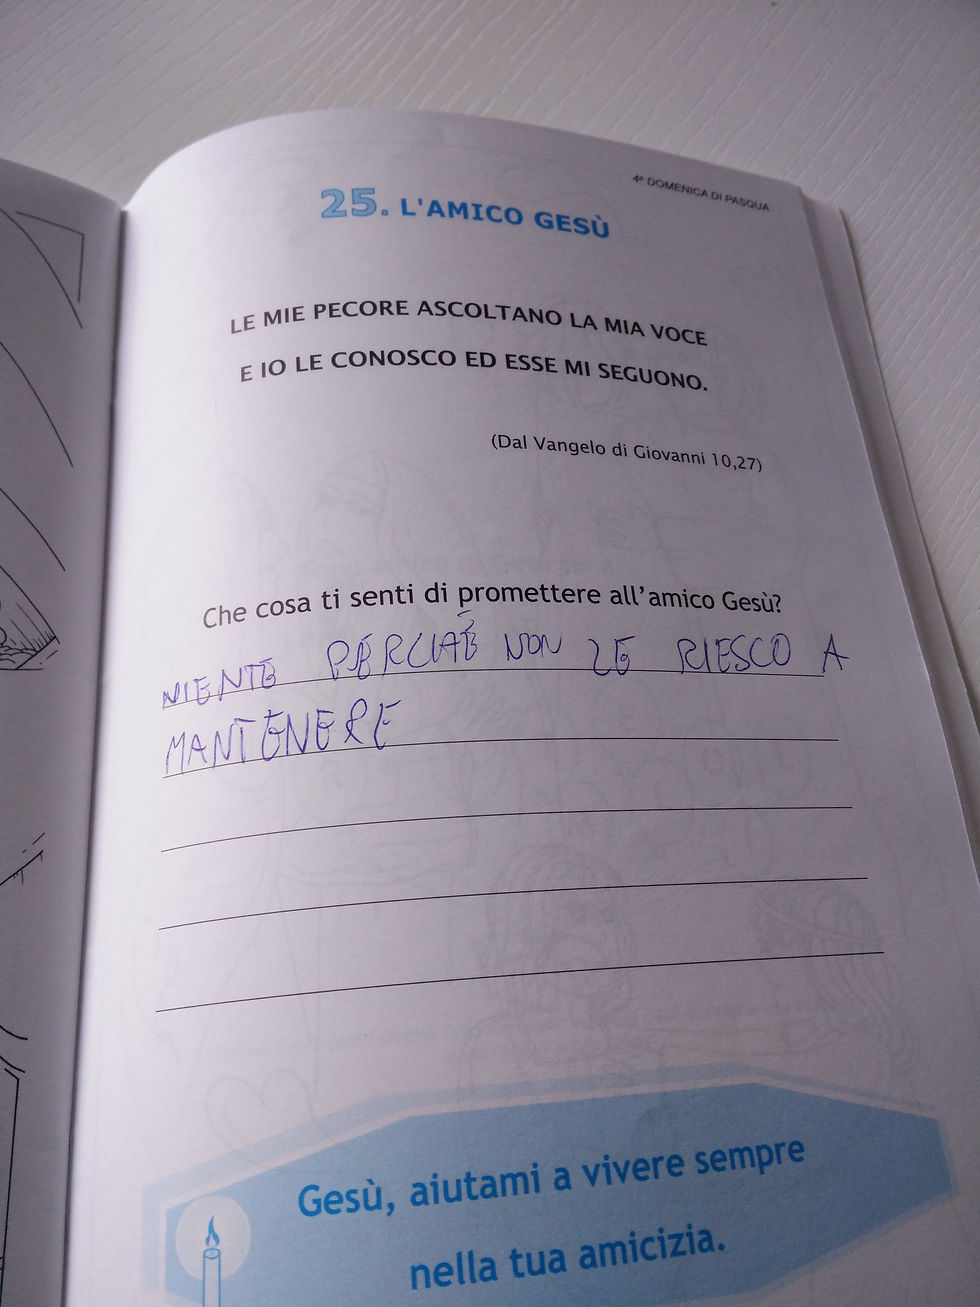 4ª DOMENICA DI PASQUA
25. L'AMICO GESÙ
LE MIE PECORE ASCOLTANO LA MIA VOCE
E IO LE CONOSCO ED ESSE MI SEGUONO.
(Dal Vangelo di Giovanni 10,27)
Che cosa ti senti di promettere all'amico Gesù?
NIENTE PERCHÉ NON LE RIESCO A
MANTENERE
Gesù, aiutami a vivere sempre
nella tua amicizia.